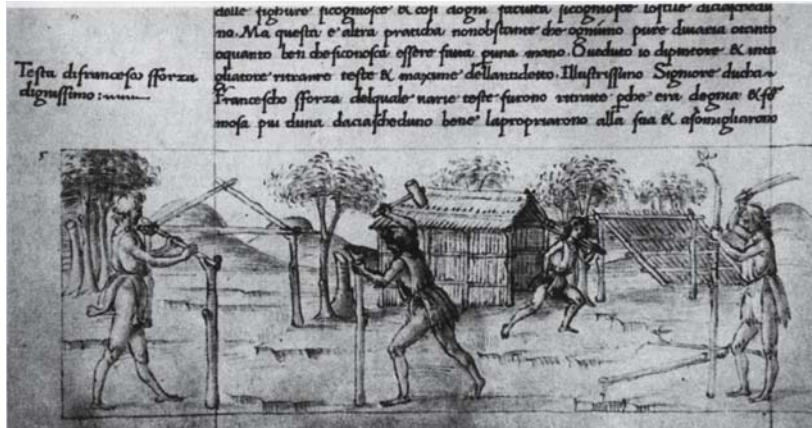 delle fighure sicognosce & cosi dogni faculta sicognosce lostile diciaschedu
no. Ma questa e altra praticha nonobstante che ognuno pure divaria otanto
oquanto ben che siconosca essere fatta duna mano. O veduto io dipintore & inta
gliatore ritrarre teste & maxime dellantidetto. Illustrissimo Signore ducha
Francescho sforza delquale varie teste furono ritratte pche era degnia & fo
mosa piu duna daciascheduno bene lapropriarono alla sua & asomigliarono
Testa difrancesco sforza
dignissimo:
5